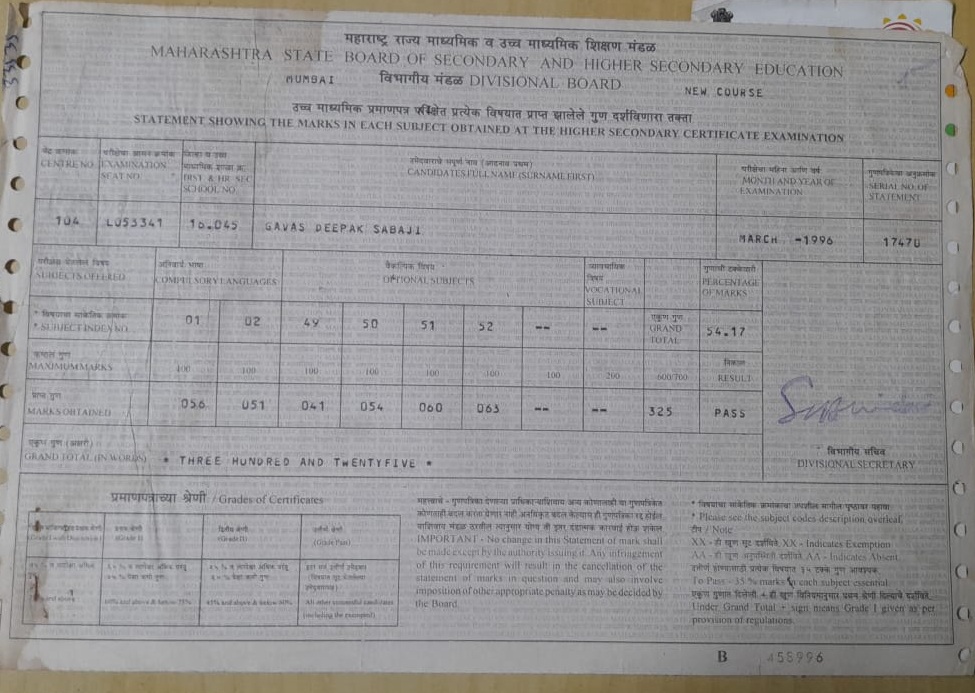 महाराष्ट्र राज्य माध्यमिक व उच्च माध्यमिक शिक्षण मंडळ
MAHARASHTRA STATE BOARD OF SECONDARY AND HIGHER SECONDARY EDUCATION
MUMBAI विभागीय मंडळ DIVISIONAL BOARD NEW COURSE
उच्च माध्यमिक प्रमाणपत्र परीक्षेत प्रत्येक विषयात प्राप्त झालेले गुण दर्शविणारा तक्ता
STATEMENT SHOWING THE MARKS IN EACH SUBJECT OBTAINED AT THE HIGHER SECONDARY CERTIFICATE EXAMINATION
केंद्र क्रमांक
CENTRE NO.
परीक्षेचा आसन क्रमांक
EXAMINATION
SEAT NO.
जिल्हा व उच्च
माध्यमिक शाळा क्र.
DIST & HR. SEC
SCHOOL NO.
उमेदवाराचे संपूर्ण नाव (आडनाव प्रथम)
CANDIDATES FULL NAME (SURNAME FIRST)
परीक्षेचा महिना आणि वर्ष
MONTH AND YEAR OF
EXAMINATION
गुणपत्रिकेचा अनुक्रमांक
SERIAL NO. OF
STATEMENT
104 L053341 16.045 GAVAS DEEPAK SABAJI MARCH -1996 17470
SUBJECTS OFFERED
अनिवार्य भाषा
COMPULSORY LANGUAGES
वैकल्पिक विषय
OPTIONAL SUBJECTS
व्यावसायिक
विषय
VOCATIONAL
SUBJECT
गुणांची टक्केवारी
PERCENTAGE
OF MARKS
* विषयाचा सांकेतिक क्रमांक
* SUBJECT INDEX NO.
01 02 49 50 51 52 -- --
एकूण गुण
GRAND
TOTAL
54.17
कमाल गुण
MAXIMUM MARKS
100 100 100 100 100 100 100 200 600/700
निकाल
RESULT
प्राप्त गुण
MARKS OBTAINED
056 051 041 054 060 063 -- -- 325 PASS
एकूण गुण (अक्षरी)
GRAND TOTAL (IN WORDS) * THREE HUNDRED AND TWENTYFIVE *
विभागीय सचिव
DIVISIONAL SECRETARY
प्रमाणपत्राच्या श्रेणी / Grades of Certificates
प्रथम श्रेणी
(Grade I)
द्वितीय श्रेणी
(Grade II)
तृतीय श्रेणी
(Grade Pass)
60% and above & below 75%
45% and above & below 60%
All other successful candidates
(including the exempted)
IMPORTANT - No change in this Statement of mark shall
be made except by the authority issuing it. Any infringement
of this requirement will result in the cancellation of the
statement of marks in question and may also involve
imposition of other appropriate penalty as may be decided by
the Board.
* Please see the subject codes description overleaf.
टीप / Note
XX - ही खूण सूट दर्शविते. XX - Indicates Exemption
AA - ही खूण अनुपस्थिती दर्शविते. AA - Indicates Absent.
To Pass - 35 % marks in each subject essential.
Under Grand Total + sign means Grade I given as per
provision of regulations.
B 458996